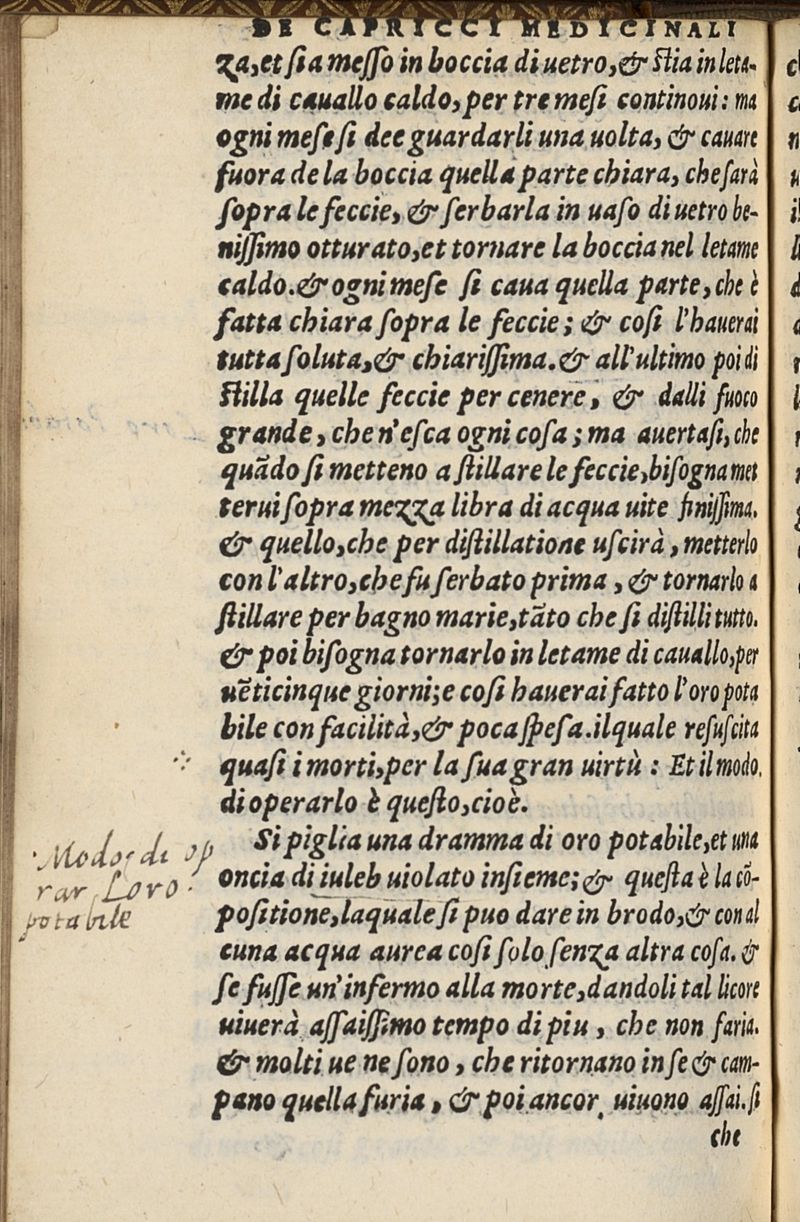 DE CAPRICCI MEDICINALI
za, et sia messo in boccia di uetro, & stia in leta-
me di cauallo caldo, per tre mesi continoui: ma
ogni mese si dee guardarli una uolta, & cauare
fuora de la boccia quella parte chiara, che sarà
sopra le feccie, & serbarla in uaso di uetro be-
nissimo otturato, et tornare la boccia nel letame
caldo. & ogni mese si caua quella parte, che è
fatta chiara sopra le feccie; & cosi l'hauerai
tutta soluta, & chiarissima. & all'ultimo poi di
stilla quelle feccie per cenere, & dalli fuoco
grande, che n'esca ogni cosa; ma auertasi, che
quãdo si metteno a stillare le feccie, bisogna met
terui sopra mezza libra di acqua uite finissima.
& quello, che per distillatione uscirà, metterlo
con l'altro, che fu serbato prima, & tornarlo a
stillare per bagno marie, tãto che si distilli tutto.
& poi bisogna tornarlo in letame di cauallo, per
uẽticinque giorni; e cosi hauerai fatto l'oro pota
bile con facilità, & poca spesa. ilquale resuscita
quasi i morti, per la sua gran uirtù: Et il modo,
di operarlo è questo, cioè.
Si piglia una dramma di oro potabile, et una
oncia di iuleb uiolato insieme; & questa è la cõ-
positione, laquale si puo dare in brodo, & con al
cuna acqua aurea cosi solo senza altra cosa. &
se fusse un'infermo alla morte, dandoli tal licore
uiuerà assaissimo tempo di piu, che non faria.
& molti ue ne sono, che ritornano in se & cam-
pano quella furia, & poi ancor uiuono assai. si
che
Modo di op
rar Loro
potabile